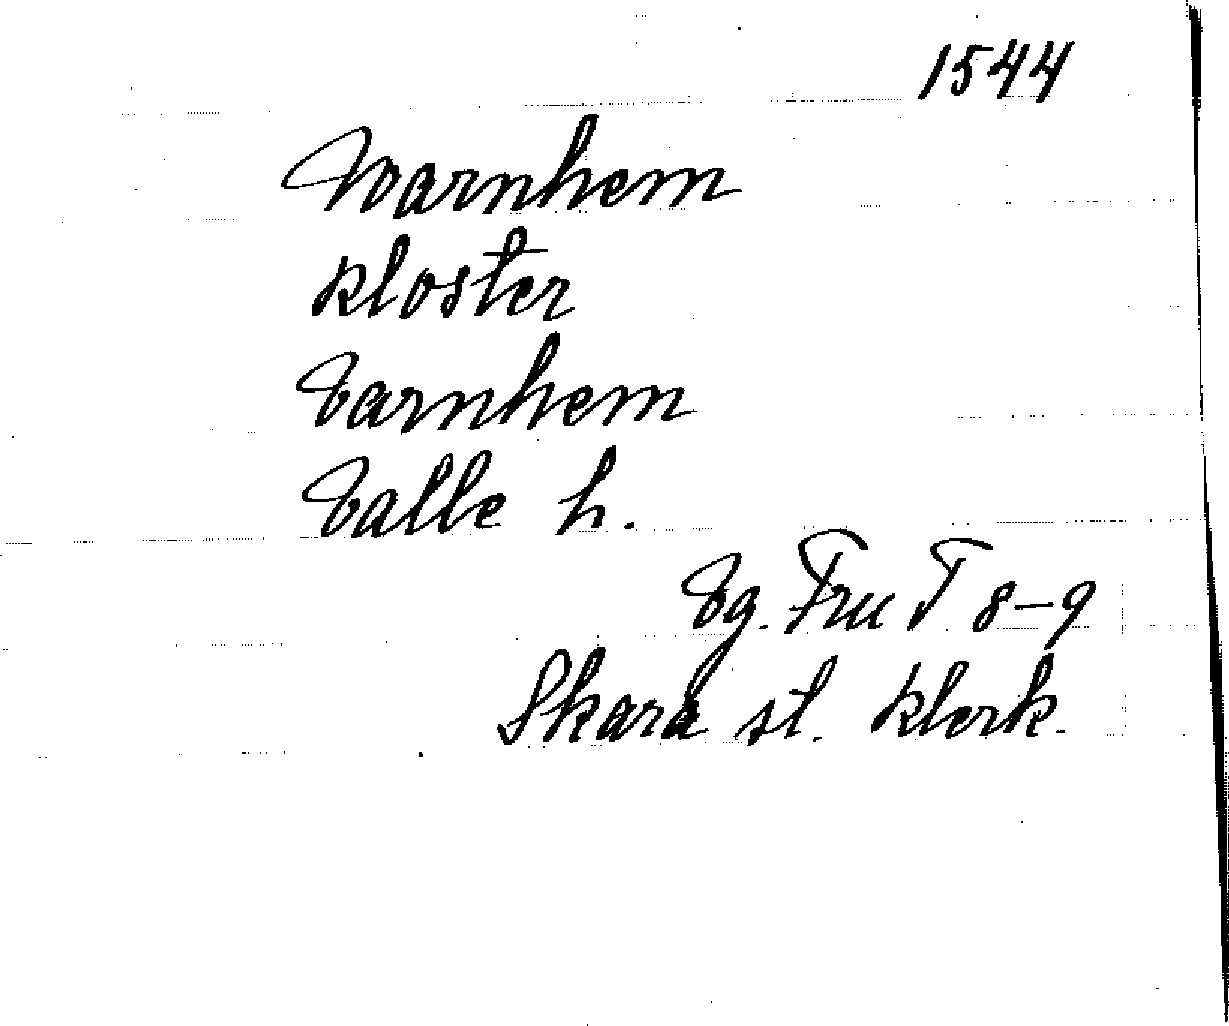 1544
Warnhem
kloster
Varnhem
Valle h.
Vg. Fru T 8-9
Skara st. klerk.